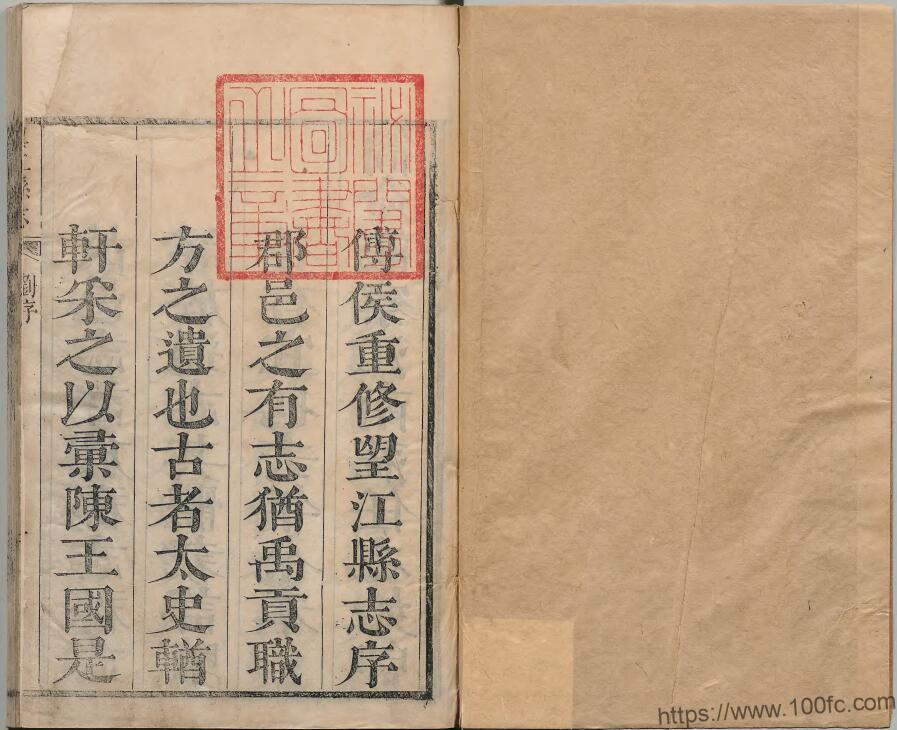 秘閣
圖書
之章
傅侯重修望江縣志序
郡邑之有志猶禹貢職
方之遺也古者太史輶
軒采之以彙陳王國是
劉序
https://www.100fc.com